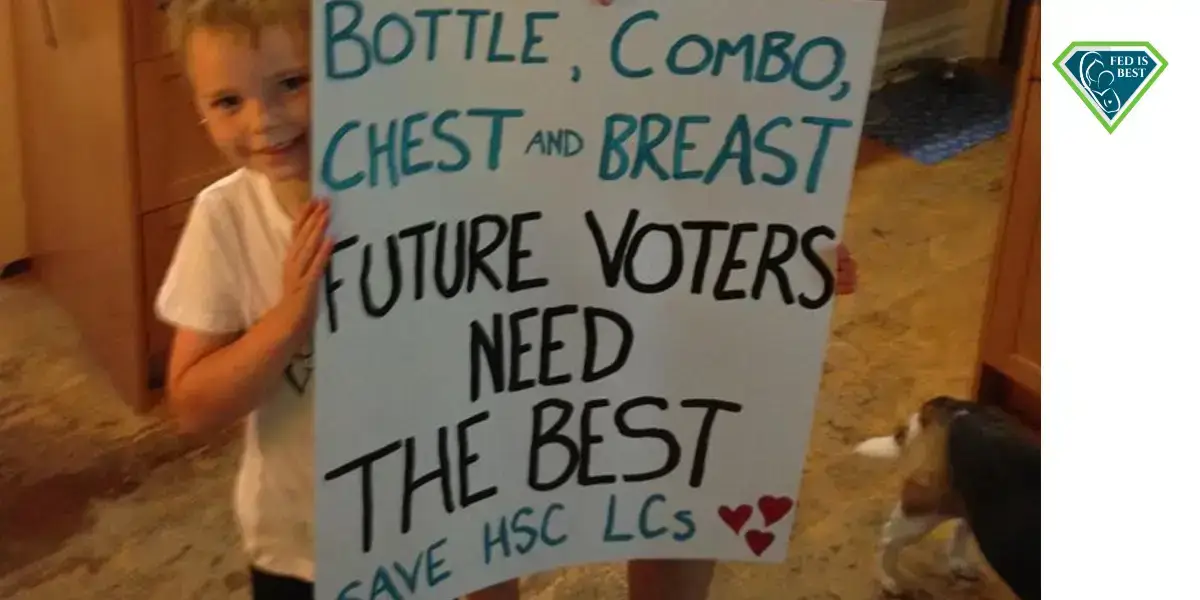 BOTTLE, COMBO,
CHEST AND BREAST
FUTURE VOTERS
NEED
THE BEST
SAVE HSC LCs
FED IS
BEST